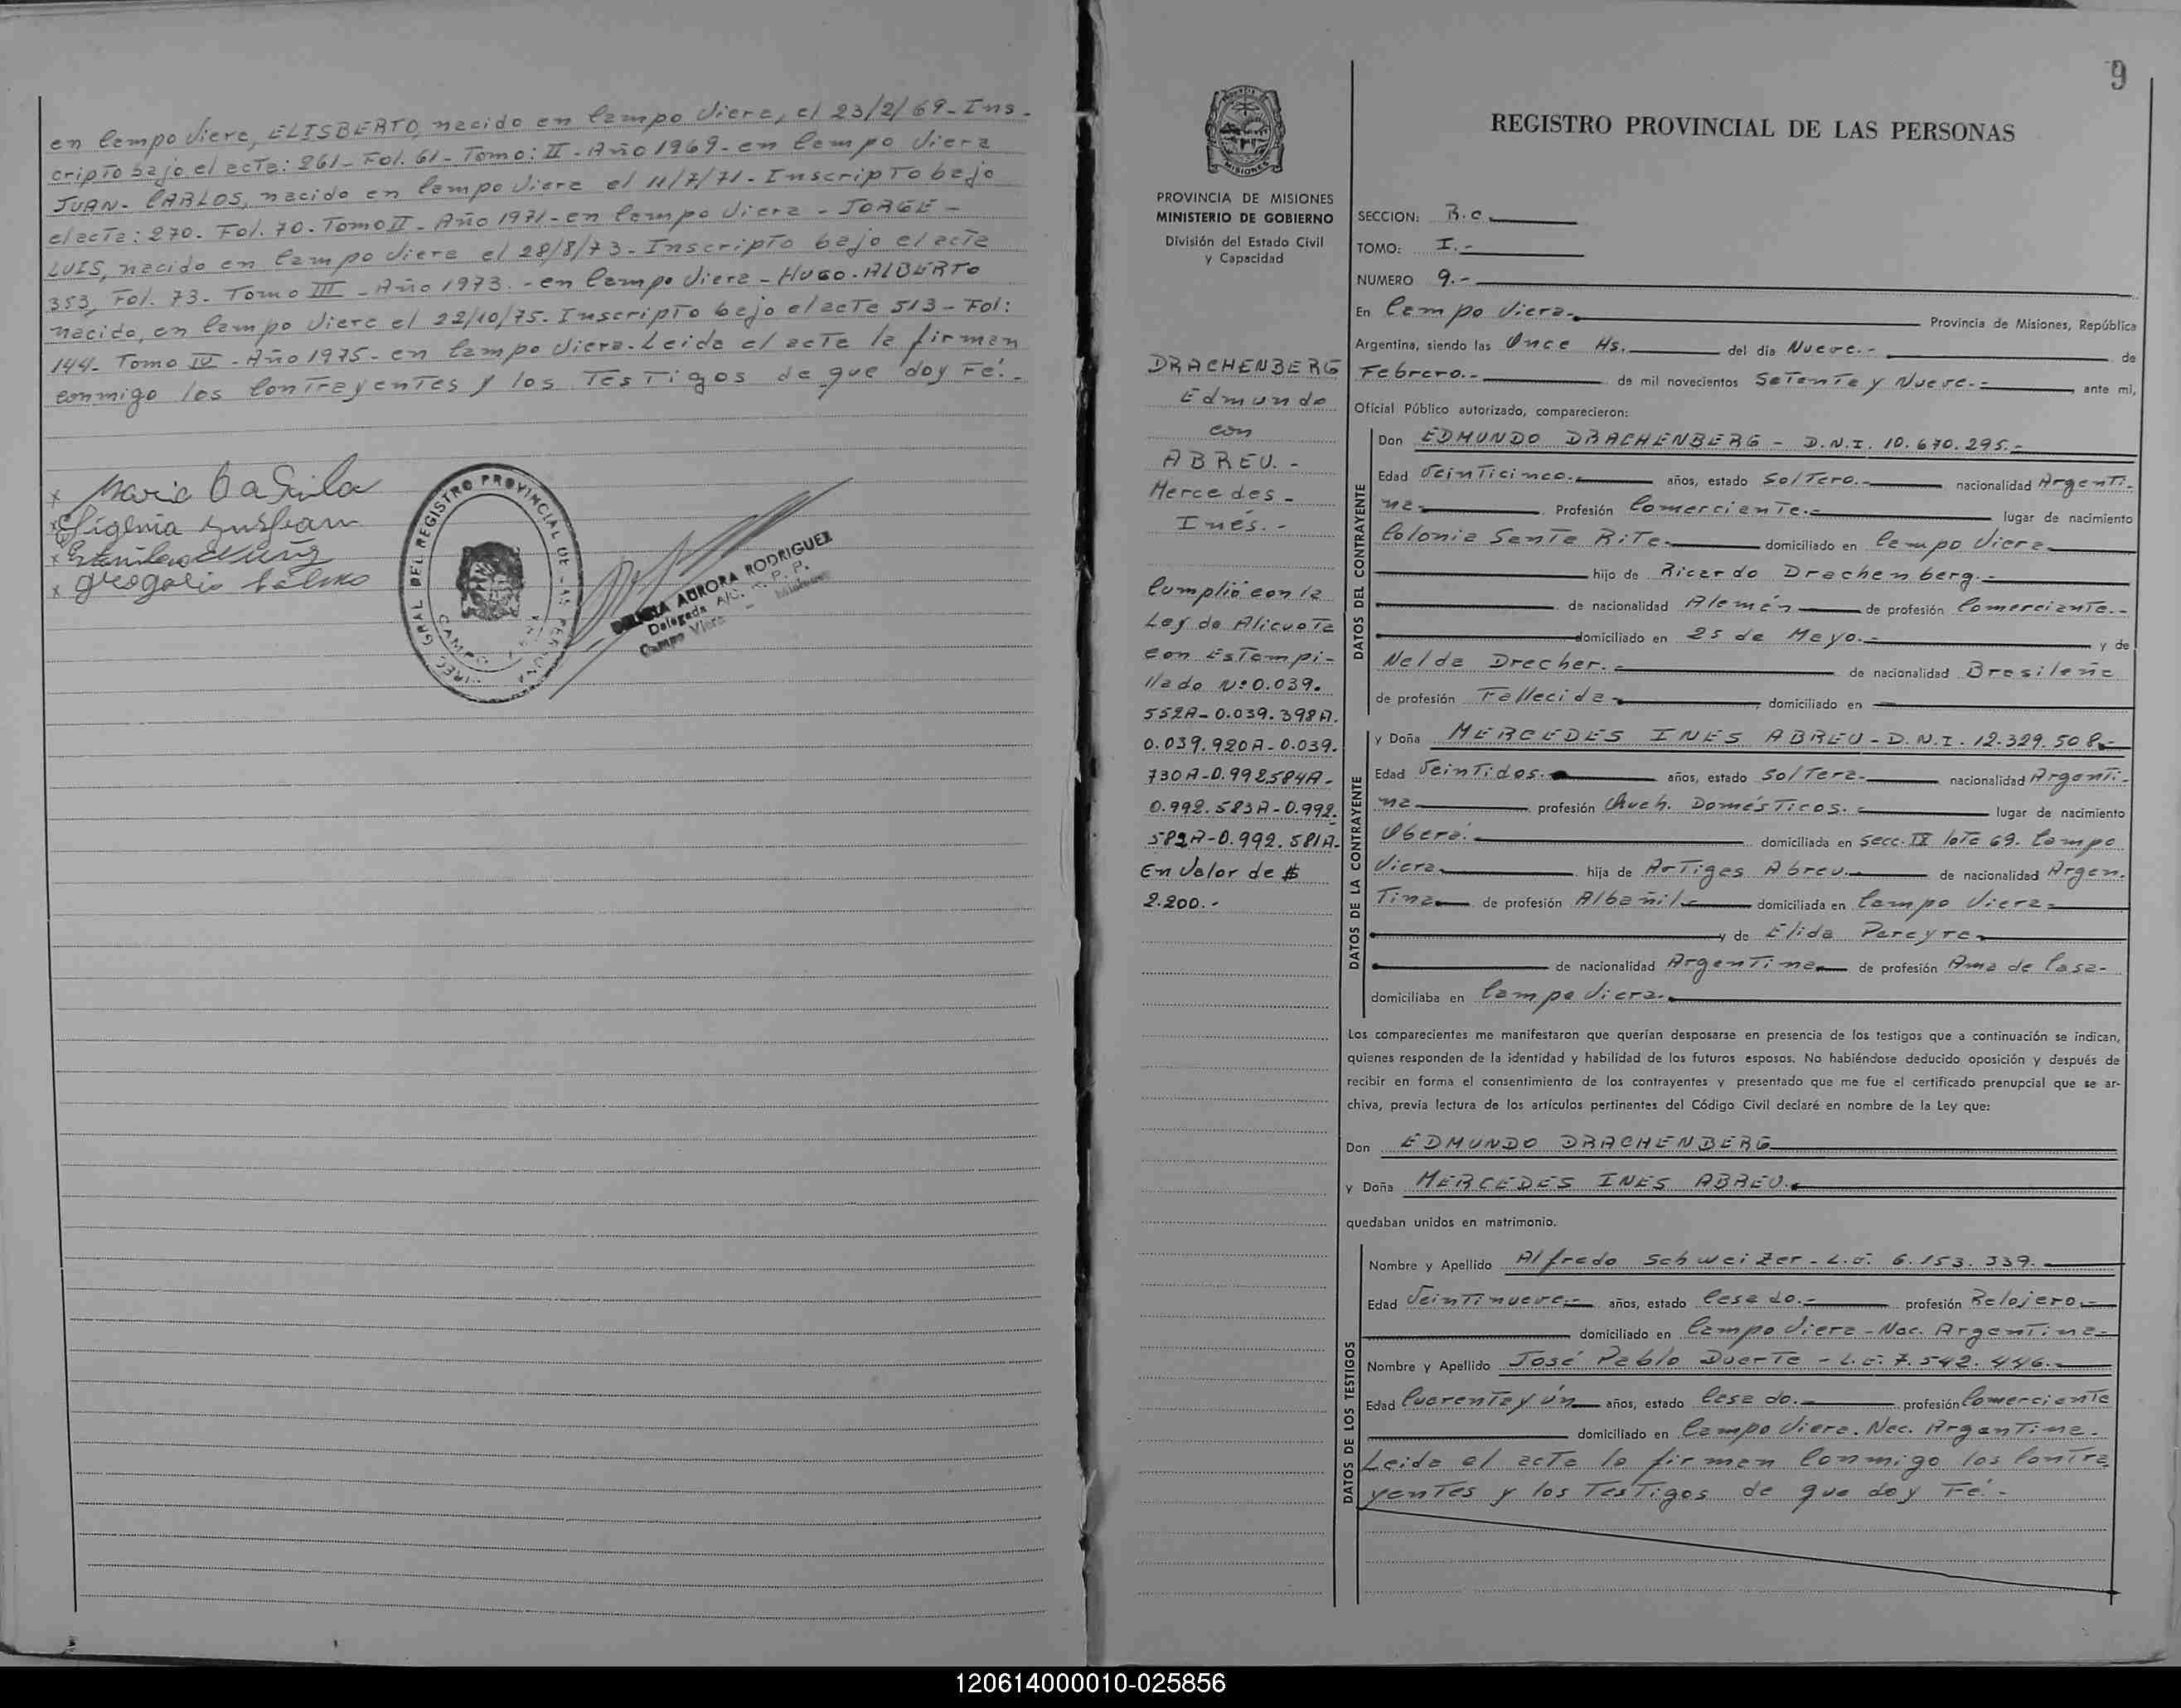 en Campo Viera, ELISBERTO, nacido en Campo Viera, el 23/2/69 - Ins-
cripto bajo el acta: 261 - Fol. 61 - Tomo: II - Año 1969 - en Campo Viera
JUAN - CARLOS, nacido en Campo Viera el 11/7/71 - Inscripto bajo
el acta: 270. Fol. 70. Tomo II - Año 1971 - en Campo Viera - JORGE -
LUIS, nacido en Campo Viera el 28/8/73 - Inscripto bajo el acta
353, Fol. 73 - Tomo III - Año 1973. - en Campo Viera - HUGO - ALBERTO
nacido, en Campo Viera el 22/10/75 - Inscripto bajo el acta 513 - Fol:
144 - Tomo IV - Año 1975 - en Campo Viera - Leida el acta la firman
conmigo los Contrayentes y los Testigos de que doy Fé. -
x Maria
x
x
x gregorio
DIREC. GRAL. DEL REGISTRO PROVINCIAL DE LAS PERSONAS
CAMPO VIERA
DELICIA AURORA RODRIGUEZ
Delegada A/C. R. P. P.
Campo Viera - Misiones
9
MISIONES
PROVINCIA DE MISIONES
MINISTERIO DE GOBIERNO
División del Estado Civil
y Capacidad
DRACHENBERG
Edmundo
con
ABREU. -
Mercedes -
Inés. -
Cumplió con la
Ley de Alicuota
con Estampi-
llado Nº 0.039.
552A - 0.039.398A.
0.039.920A - 0.039.
730A - 0.992.584A -
0.992.583A - 0.992.
582A - 0.992.581A -
En Valor de $
2.200. -
REGISTRO PROVINCIAL DE LAS PERSONAS
SECCION: R.c.
TOMO: I. -
NUMERO 9. -
En Campo Viera. Provincia de Misiones, República
Argentina, siendo las Once Hs. del día Nueve. - de
Febrero. - de mil novecientos Setenta y Nueve. - ante mi,
Oficial Público autorizado, comparecieron:
DATOS DEL CONTRAYENTE
Don EDMUNDO DRACHENBERG - D.N.I. 10.670.295. -
Edad Veinticinco. años, estado Soltero. - nacionalidad Argenti-
na - Profesión Comerciante. - lugar de nacimiento
Colonia Santa Rita - domiciliado en Campo Viera
hijo de Ricardo Drachenberg. -
de nacionalidad Alemán de profesión Comerciante. -
domiciliado en 25 de Mayo. - y de
Nelda Drecher. - de nacionalidad Brasileña
de profesión Fallecida - domiciliado en
DATOS DE LA CONTRAYENTE
y Doña MERCEDES INES ABREU - D.N.I. 12.329.508. -
Edad Veintidos. años, estado Soltera - nacionalidad Argenti-
na profesión Queh. Domésticos. - lugar de nacimiento
Oberá. domiciliada en Secc. IX lote 69. Campo
Viera hija de Artigas Abreu. de nacionalidad Argen-
tina de profesión Albañil - domiciliada en Campo Viera
y de Elida Pereyra
de nacionalidad Argentina de profesión Ama de Casa -
domiciliaba en Campo Viera.
Los comparecientes me manifestaron que querían desposarse en presencia de los testigos que a continuación se indican,
quienes responden de la identidad y habilidad de los futuros esposos. No habiéndose deducido oposición y después de
recibir en forma el consentimiento de los contrayentes y presentado que me fue el certificado prenupcial que se ar-
chiva, previa lectura de los artículos pertinentes del Código Civil declaré en nombre de la Ley que:
Don EDMUNDO DRACHENBERG
y Doña MERCEDES INES ABREU.
quedaban unidos en matrimonio.
DATOS DE LOS TESTIGOS
Nombre y Apellido Alfredo Schweizer - L.E. 6.153.339.
Edad Veintinueve - años, estado Casado. - profesión Relojero. -
domiciliado en Campo Viera - Nac. Argentina -
Nombre y Apellido José Pablo Duarte - L.E. 7.542.446.
Edad Cuarenta y ún años, estado Casado. profesión Comerciante
domiciliado en Campo Viera. Nac. Argentina -
Leida el acta la firman Conmigo los Contra
yentes y los Testigos de que doy Fé. -
120614000010-025856